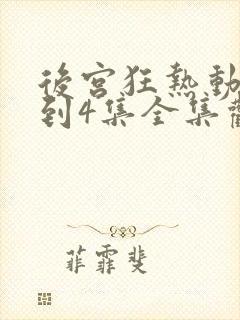 後宮狂熱動
到4集全集
菲霏斐